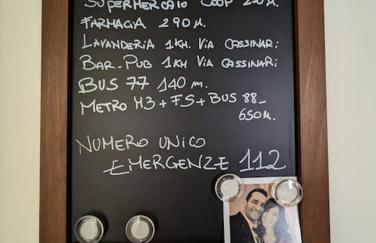 SUPERMERCATO COOP 290 M.
FARMACIA 290 M.
LAVANDERIA 1KM. VIA CASSINARI
BAR-PUB 1KM VIA CASSINARI
BUS 77 140 M.
METRO M3 + FS + BUS 88-
650M.
NUMERO UNICO
EMERGENZE 112